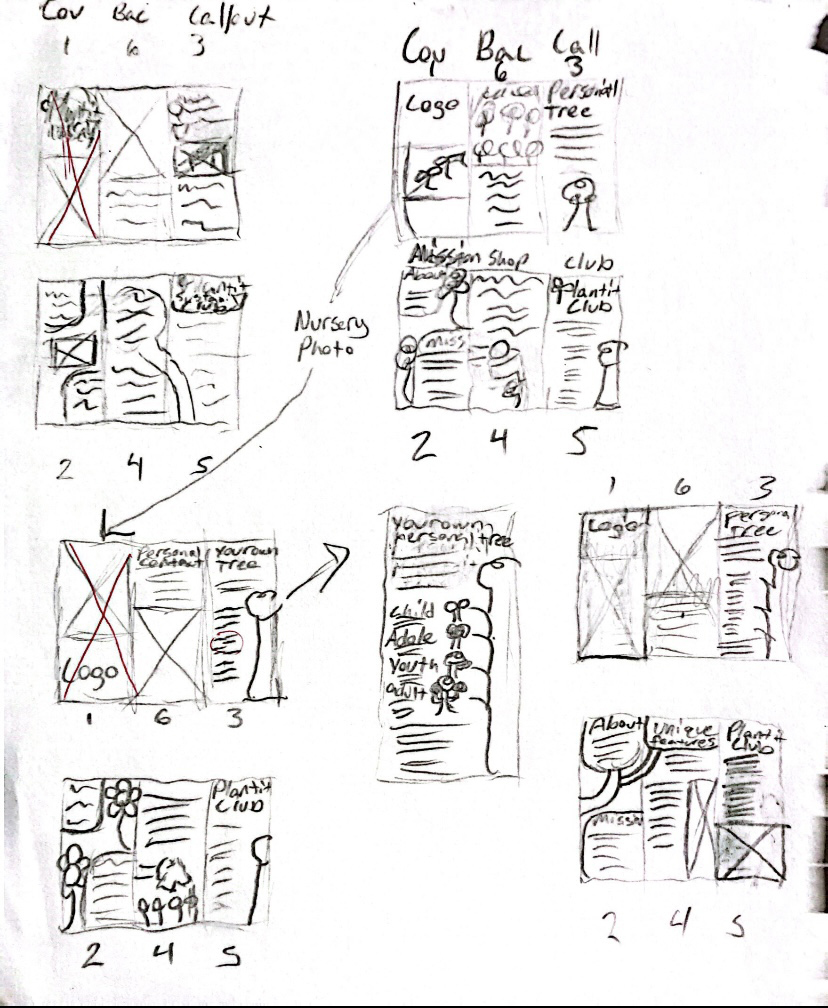 Cov Bac Callout
1 6 3
Cov Bac Call
6 3
Logo
Personal
Tree
2 4 5
Mission Shop Club
About
Plantit
Club
Miss
2 4 5
Nursery
Photo
Personal
Contact
Your own
Tree
Logo
1 6 3
Your own
personal tree
Child
Adole
Youth
adult
1 6 3
Logo
Person
Tree
Plantit
Club
2 4 5
About
Unique
features
Plantit
Club
Missn
2 4 5